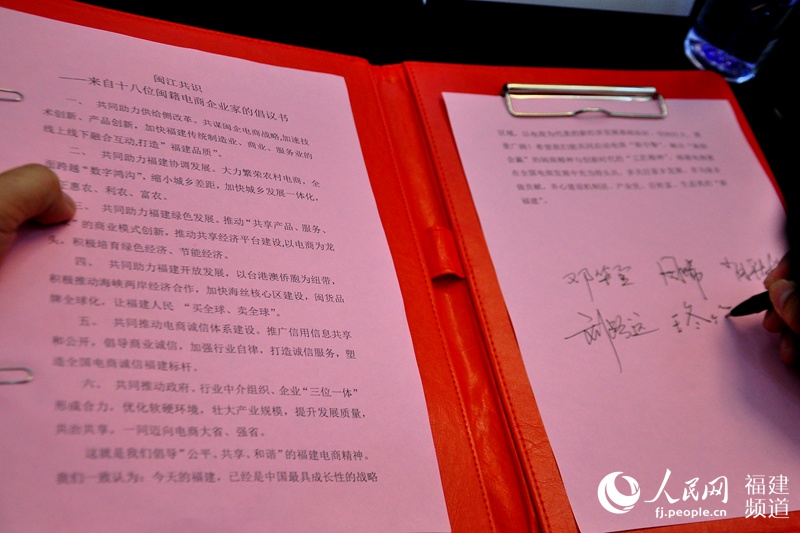 闽江共识
——来自十八位闽籍电商企业家的倡议书
一、 共同助力供给侧改革。共谋闽企电商战略,加速技
术创新、产品创新,加快福建传统制造业、商业、服务业的
线上线下融合互动,打造"福建品质"。
二、 共同助力福建协调发展。大力繁荣农村电商,全
跨越"数字鸿沟",缩小城乡差距,加快城乡发展一体化,
正惠农、利农、富农。
三、 共同助力福建绿色发展。推动"共享产品、服务、
"的商业模式创新,推动共享经济平台建设,以电商为龙
头,积极培育绿色经济、节能经济。
四、 共同助力福建开放发展,以台港澳侨胞为纽带,
积极推动海峡两岸经济合作,加快海丝核心区建设,闽货品
牌全球化,让福建人民 "买全球、卖全球"。
五、 共同推动电商诚信体系建设。推广信用信息共享
和公开,倡导商业诚信,加强行业自律,打造诚信服务,塑
造全国电商诚信福建标杆。
六、 共同推动政府、行业中介组织、企业"三位一体"
形成合力,优化软硬环境,壮大产业规模,提升发展质量,
共治共享,一同迈向电商大省、强省。
这就是我们倡导"公平、共享、和谐"的福建电商精神。
我们一致认为:今天的福建,已经是中国最具成长性的战略
区域,以电商为代表的
福建"。
人民网
fj.people.cn
福建
频道